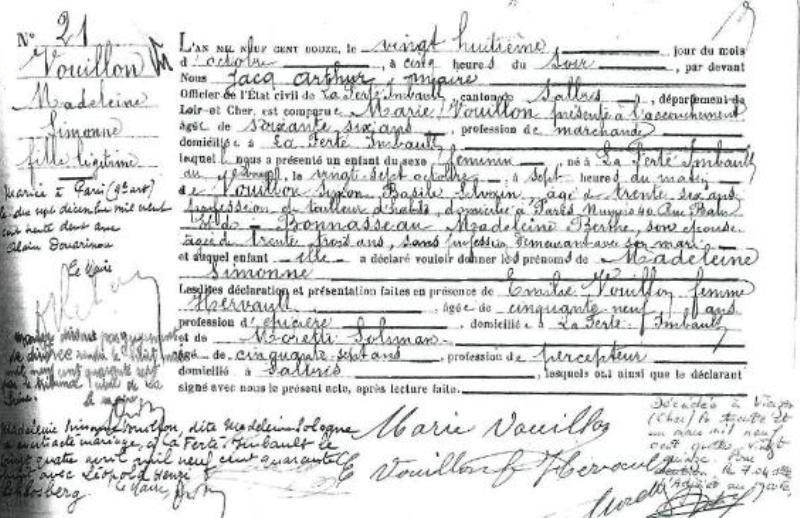 N° 21
Vouillon
Madeleine
Simonne
fille légitime
Mariée à Paris (9e art)
le dix sept décembre mil neuf
cent trente deux avec
Alain Douarinou
Le Maire
L'AN MIL NEUF CENT DOUZE, le vingt huitième jour du mois
d'octobre, à cinq heures du soir, par devant
Nous Jacq Arthur, maire
Officier de l'État civil de La Ferté Imbault, canton de Salbris, département de
Loir-et-Cher, est comparue Marie Vouillon présente à l'accouchement
âgée de soixante six ans, profession de marchande
domiciliée à La Ferté Imbault
lequel nous a présenté un enfant du sexe féminin, né à La Ferté Imbault
le vingt-sept octobre, à sept heures du matin
de Vouillon Simon Basile Silvain, âgé de trente six ans
profession de tailleur d'habits, domicilié à Paris 40, Rue
et de Bonnasseau Madeleine Berthe, son épouse
âgée de trente trois ans, sans profession, demeurant avec son mari
et auquel enfant elle a déclaré vouloir donner les prénoms de Madeleine
Simonne
Lesdites déclaration et présentation faites en présence de Emilie Vouillon femme
Hervault, âgée de cinquante neuf ans
profession d'épicière, domiciliée à La Ferté Imbault
et de Moretti
âgé de cinquante sept ans, profession de percepteur
domicilié à Salbris, lesquels ont ainsi que le déclarant
signé avec nous le présent acte, après lecture faite.
mariage dissout par jugement
de divorce rendu le
mil neuf cent quarante
par le tribunal civil de la
Seine.
le maire
Madeleine Simonne Vouillon, dite Madeleine Sologne
a contracté mariage, à La Ferté-Imbault le
vingt quatre avril mil neuf cent quarante
huit avec Léopold Henri
Schlosberg Le Maire
Marie Vouillon
E Vouillon f Hervault
Moretti
Décédée à Vierzon
(Cher) le trente et
un mars mil neuf
cent quatre vingt
quinze
le 7.04.